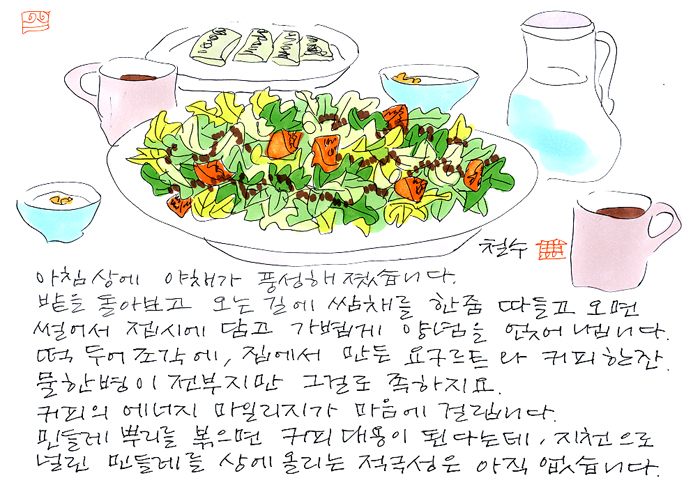 철수
아침상에 야채가 풍성해졌습니다.
밭을 돌아보고 오는 길에 쌈채를 한줌 따들고 오면
썰어서 접시에 담고 가볍게 양념을 얹어 냅니다.
떡 두어조각에, 집에서 만든 요구르트와 커피한잔.
물한병이 전부지만 그걸로 족하지요.
커피의 에너지 마일리지가 마음에 걸립니다.
민들레 뿌리를 볶으면 커피대용이 된다는데, 지천으로
널린 민들레를 상에 올리는 적극성은 아직 없습니다.